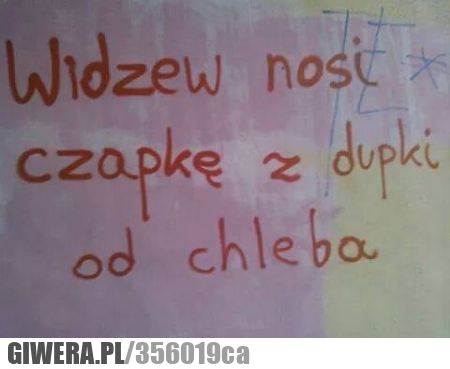 Widzew nosi
czapkę z dupki
od chleba
GIWERA.PL/356019ca